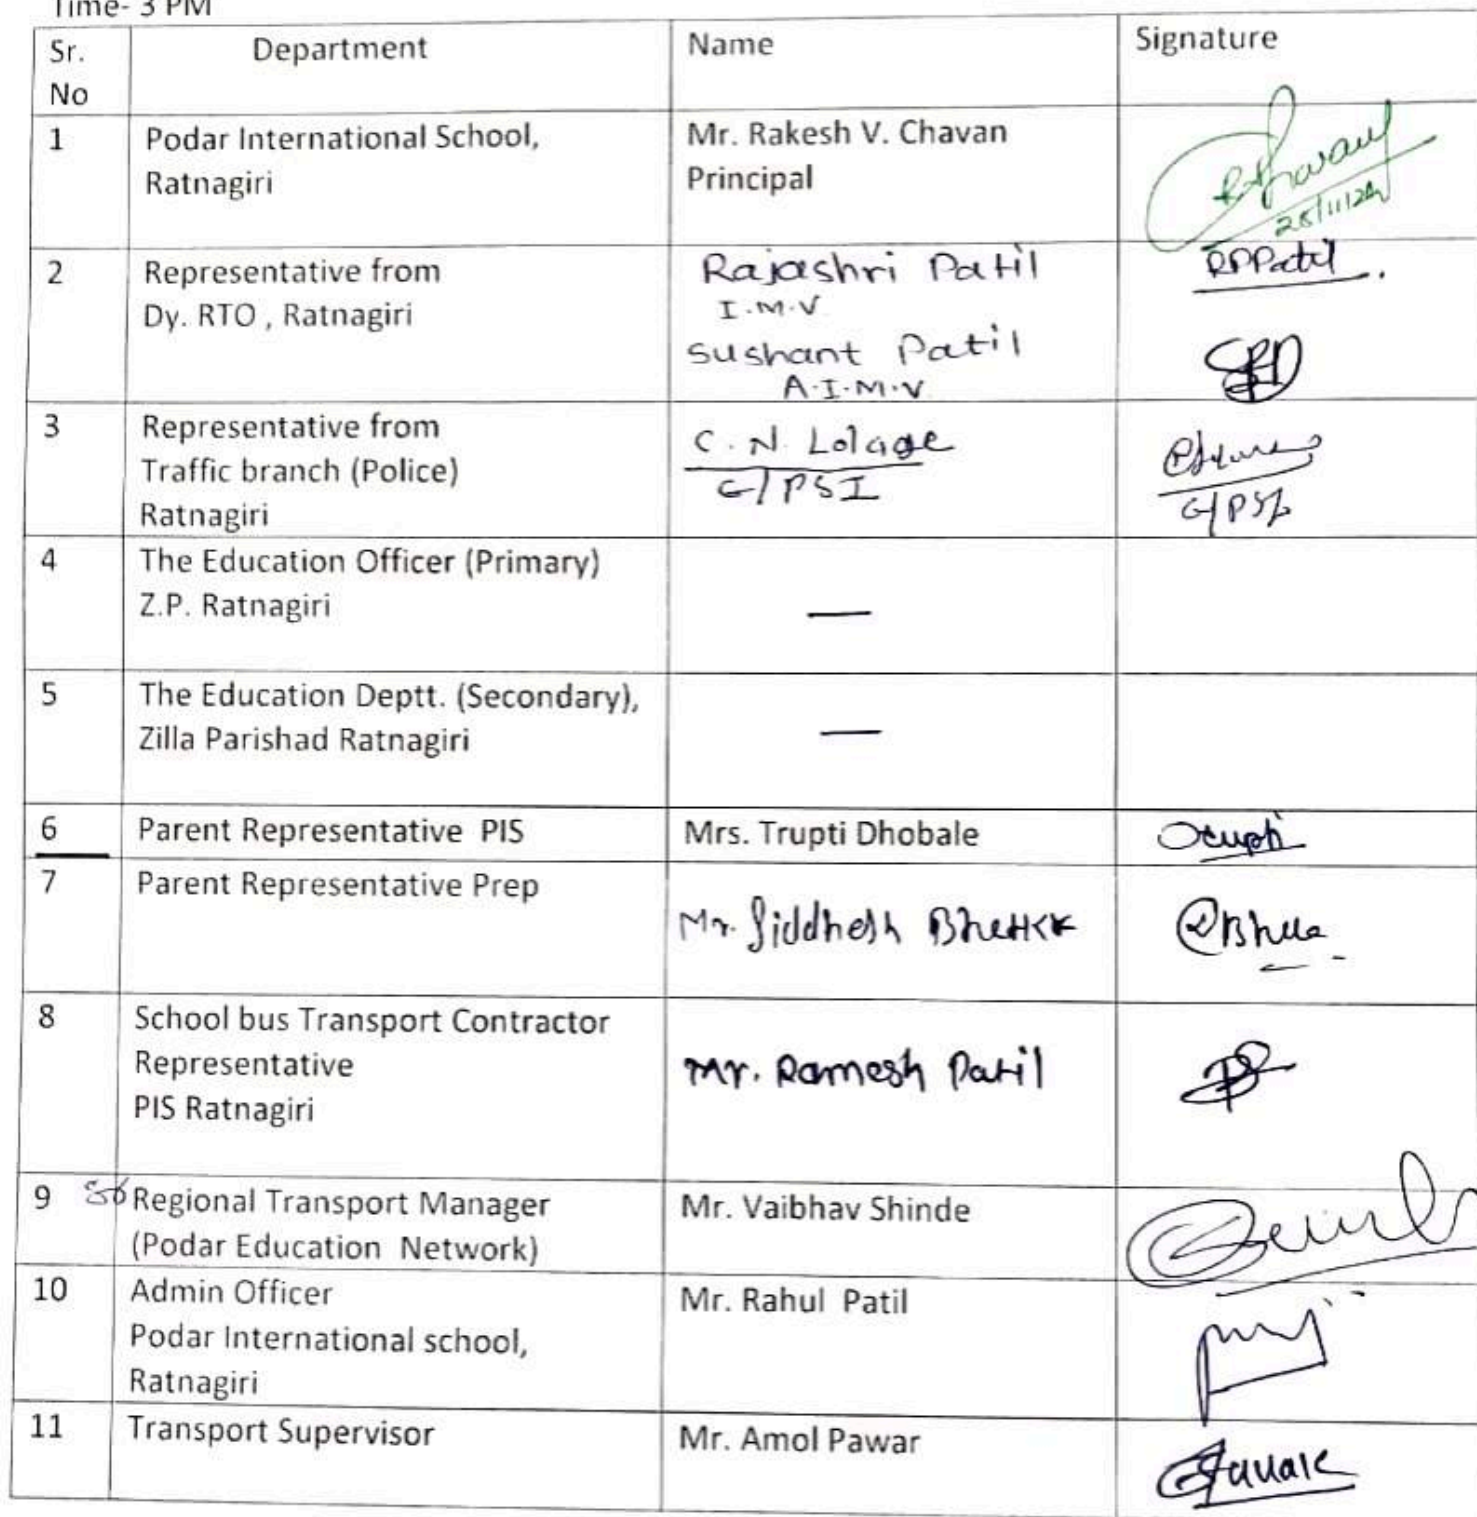 Time- 3 PM
Sr. No
Department
Name
Signature
1
Podar International School,
Ratnagiri
Mr. Rakesh V. Chavan
Principal
2
Representative from
Dy. RTO , Ratnagiri
Rajashri Patil
I.M.V
RPPatil
Sushant Patil
A.I.M.V
3
Representative from
Traffic branch (Police)
Ratnagiri
C. N. Lolage
G/PSI
G/PSI
4
The Education Officer (Primary)
Z.P. Ratnagiri
—
5
The Education Deptt. (Secondary),
Zilla Parishad Ratnagiri
—
6
Parent Representative PIS
Mrs. Trupti Dhobale
7
Parent Representative Prep
Mr. Siddhesh
8
School bus Transport Contractor
Representative
PIS Ratnagiri
Mr. Ramesh Patil
9
Regional Transport Manager
(Podar Education Network)
Mr. Vaibhav Shinde
10
Admin Officer
Podar International school,
Ratnagiri
Mr. Rahul Patil
11
Transport Supervisor
Mr. Amol Pawar